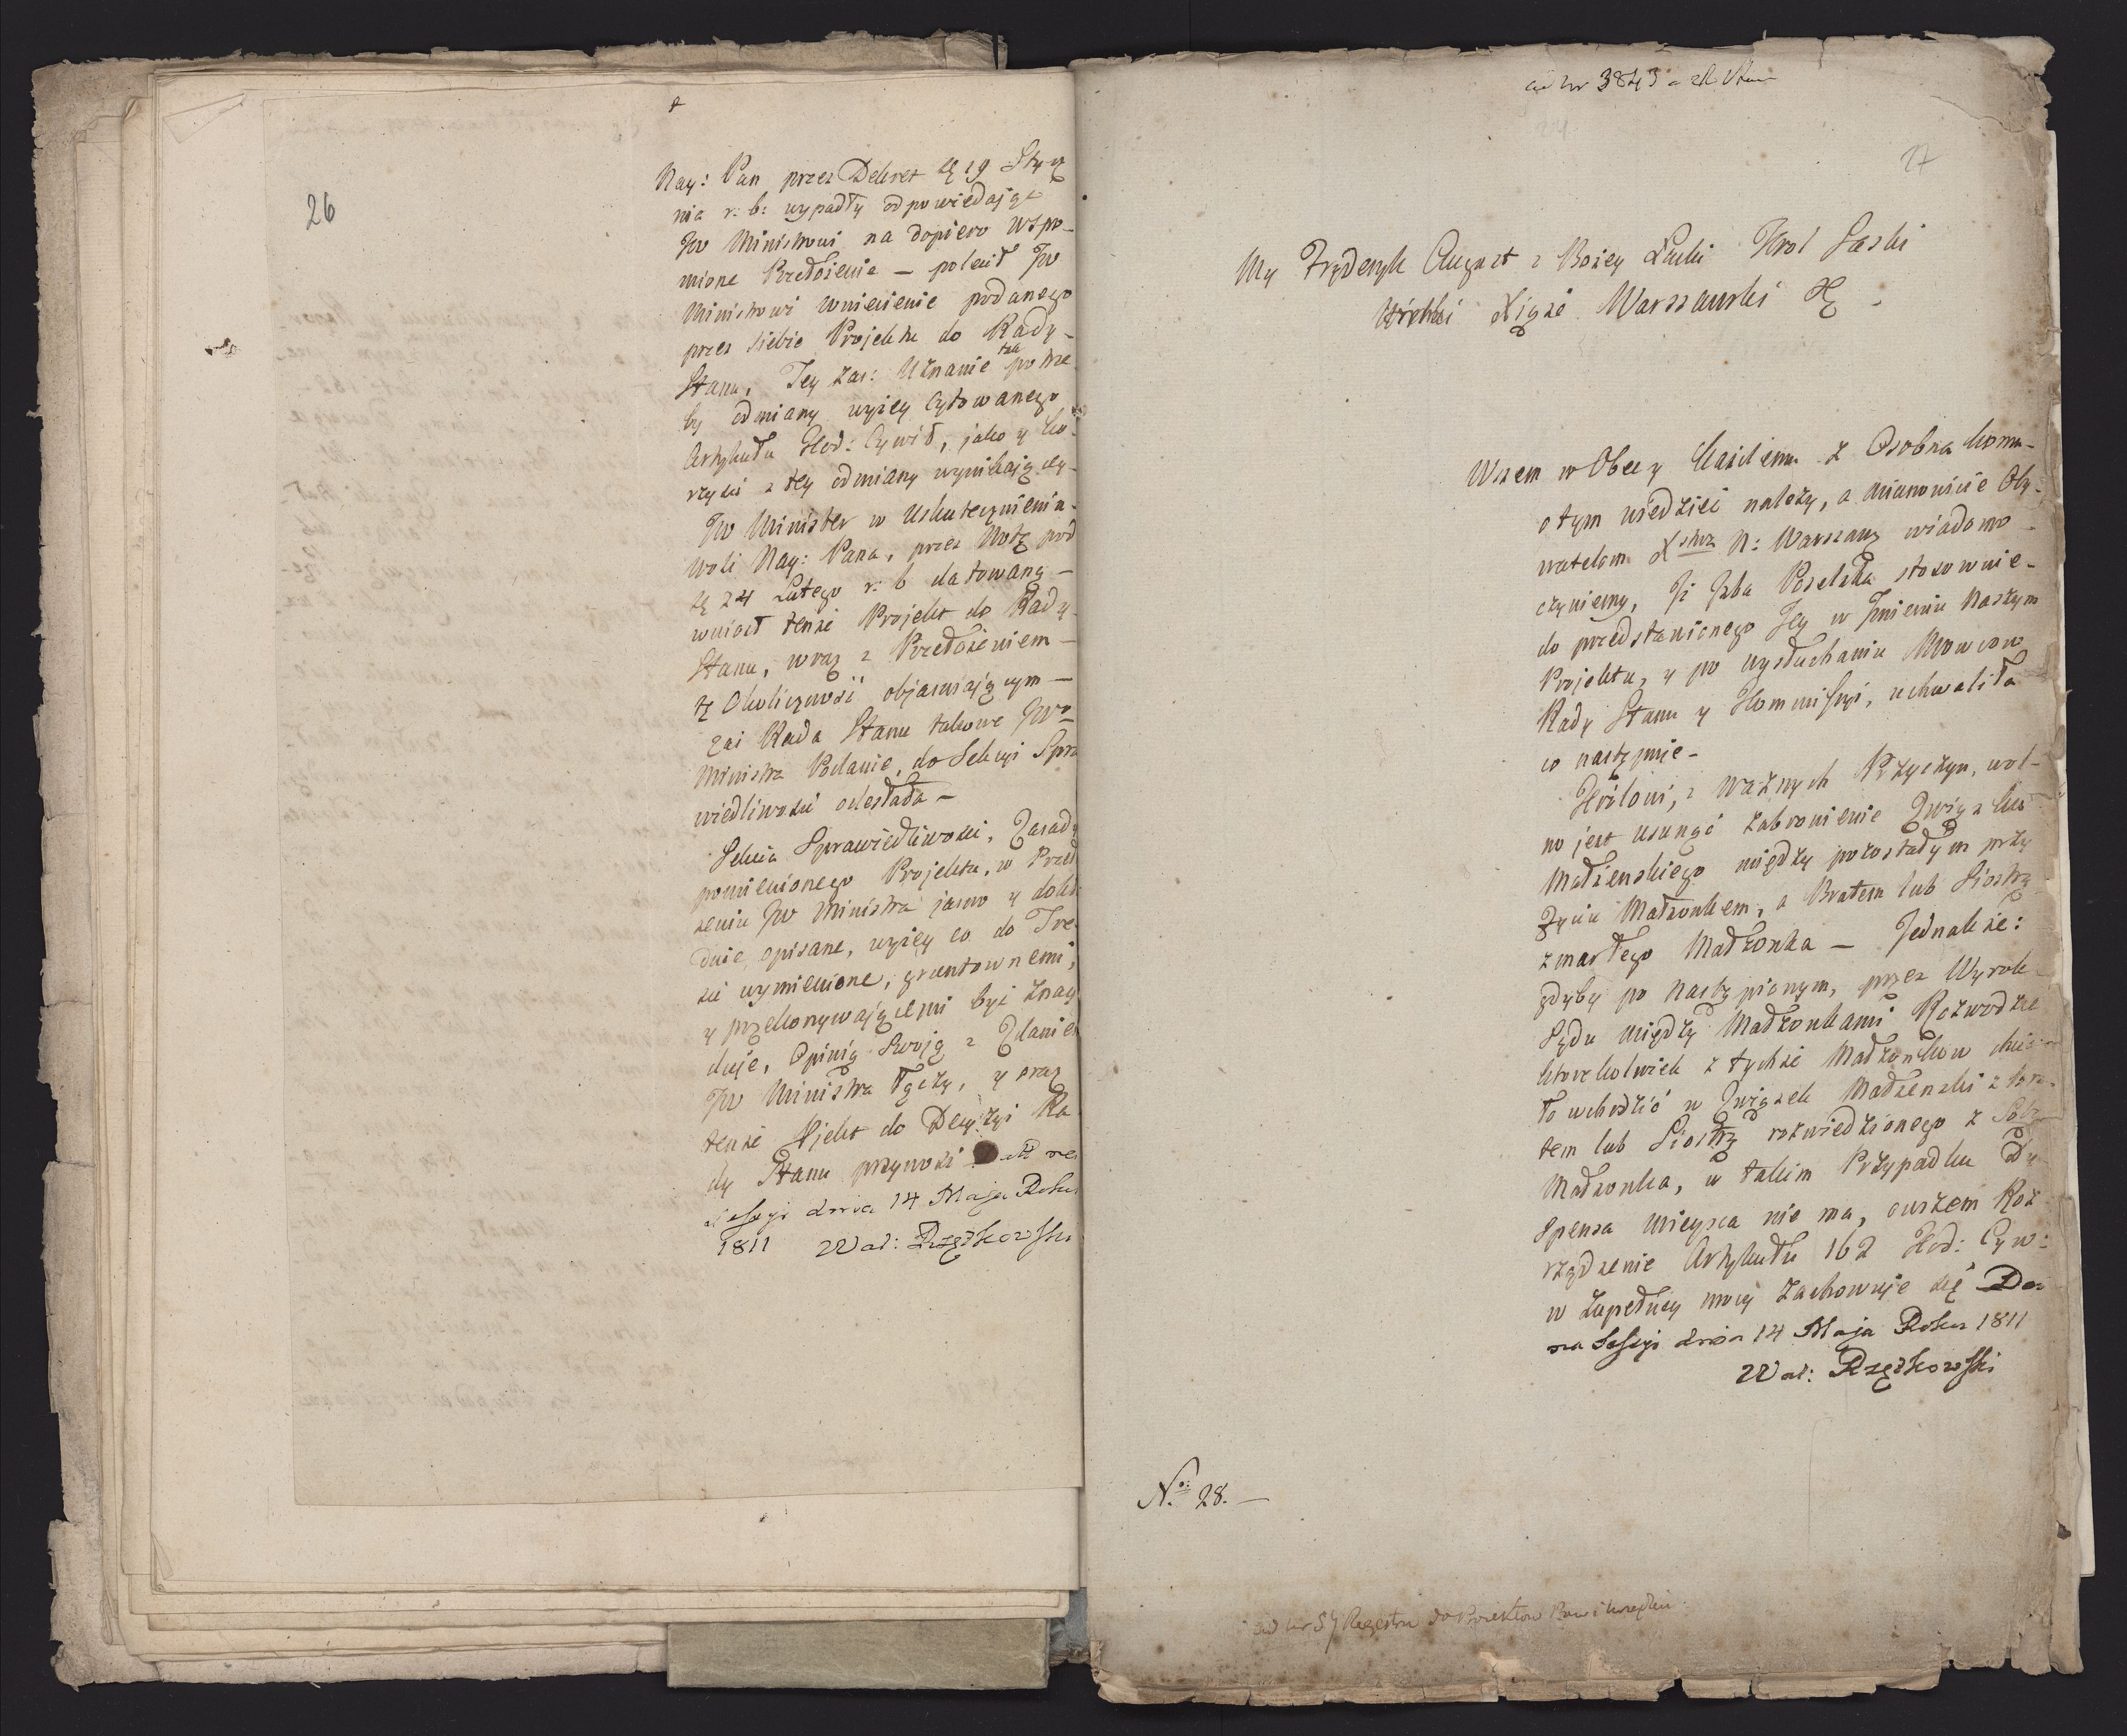 26
Nay: Pan przez Dekret d 19 Stycz
nia r: b: wypadły odpowiedając
JW Ministrowi na dopiero wspo-
mione Przedłożenie — polecił JW
Ministrowi wniesienie podanego
przez siebie Projektu do Rady-
Stanu, Tey zas: Uznanie potrze
by odmiany wyżey cytowanego
Artykułu Kod: Cywil, jako y ko-
rzysci z tey odmiany wynikającey-
JW Minister w Uskutecznieniu-
woli Nay: Pana, przez Notę pod
d 24 Lutego r: b datowaną —
wniosł tenże Projekt do Rady-
Stanu, wraz z Przedłożeniem —
tę Okoliczność objasniającym —
zaś Rada Stanu takowe JW-
Ministra Podanie, do Sekcyi Spra
wiedliwości odesłała —
Sekcia Sprawiedliwości, Zasady
pomienionego Projektu, w Przed
żeniu JW Ministra jasno y dokł
dnie, opisane, wyżey co do Tre-
ści wymienione, gruntownemi,
y przekonywającemi być znay
duje, Opinią Swoją z Zdaniem
JW Ministra łączy, y oraz
tenże Projekt do Decyzyi Ra
dy Stanu przynosi na
Sessyi dnia 14 Maja Roku
1811 Wal: Rzętkowski
ad Nr 3843 a
24
27
My Fryderyk August z Bożey Łaski Krol Saski
Xiąże Warszawski &
Wszem w Obec y Każdemu z Osobna komu-
o tym wiedzieć należy, a mianowicie Oby-
watelom Xstwa N: Warszawy wiadomo-
czyniemy, Iż Izba Poselska stosownie-
do przedstawionego Jey w Imieniu Naszym
Projektu, y po wysłuchaniu Mowcow
Rady Stanu y Kommissyi, uchwaliła
co następuje-
Krolowi, z ważnych Przyczyn, wol-
no jest usunąć zabronienie Związku
Małżenskiego między pozostałym przy
Zyciu Małżonkiem, a Bratem lub Siostrą
zmarłego Małżonka — Jednakże:
gdyby po nastąpionym, przez Wyrok
Sądu między Małżonkami Rozwodzie
ktorekolwiek z tychże Małżonkow chcia-
ło wchodzić w Związek Małżenski z Bra-
tem lub Siostrą rozwiedzionego z Sobą
Małżonka, w takim Przypadku Dy-
spensa mieysca nie ma, owszem Roz-
rządzenie Artykułu 162 Kod: Cyw:
w zupełney mocy zachowuje się Dan
na Sessyi dnia 14 Maja Roku 1811
Wal: Rzętkowski
No: 28. —
ad Nr 57 Regestru do Proiektow Praw i Urządzeń